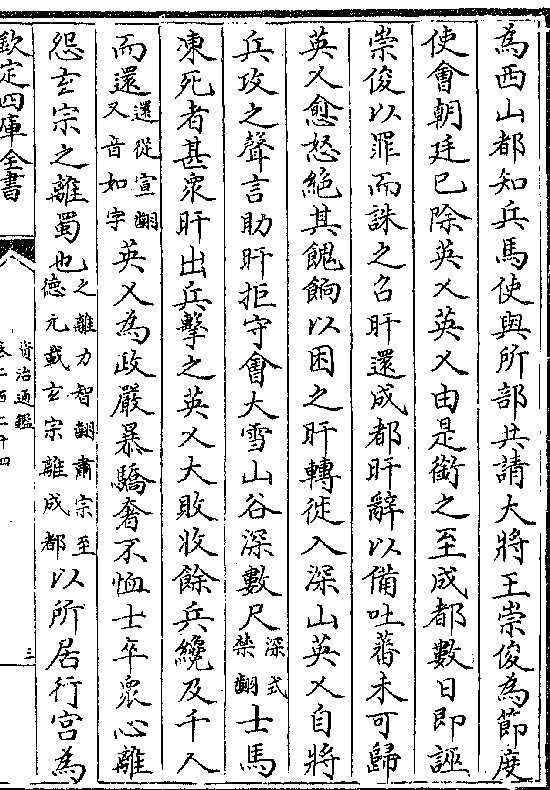 為西山都知兵馬使與所部共請大將王崇俊為節度
使會朝廷已除英乂英乂由是銜之至成都數日即誣
崇俊以罪而誅之召旰還成都旰辭以備吐蕃未可歸
英乂愈怒絶其餽餉以困之旰轉徙入深山英乂自將
兵攻之聲言助旰拒守會大雪山谷深數尺深式禁翻士馬
凍死者甚衆旰出兵擊之英乂大敗收餘兵纔及千人
而還還從宣翻又音如字英乂為政嚴暴驕奢不恤士卒衆心離
怨玄宗之離蜀也之離力智翻肅宗至德元載玄宗離成都以所居行宫為
欽定四庫全書
資治通鑑
卷二百二十四
三